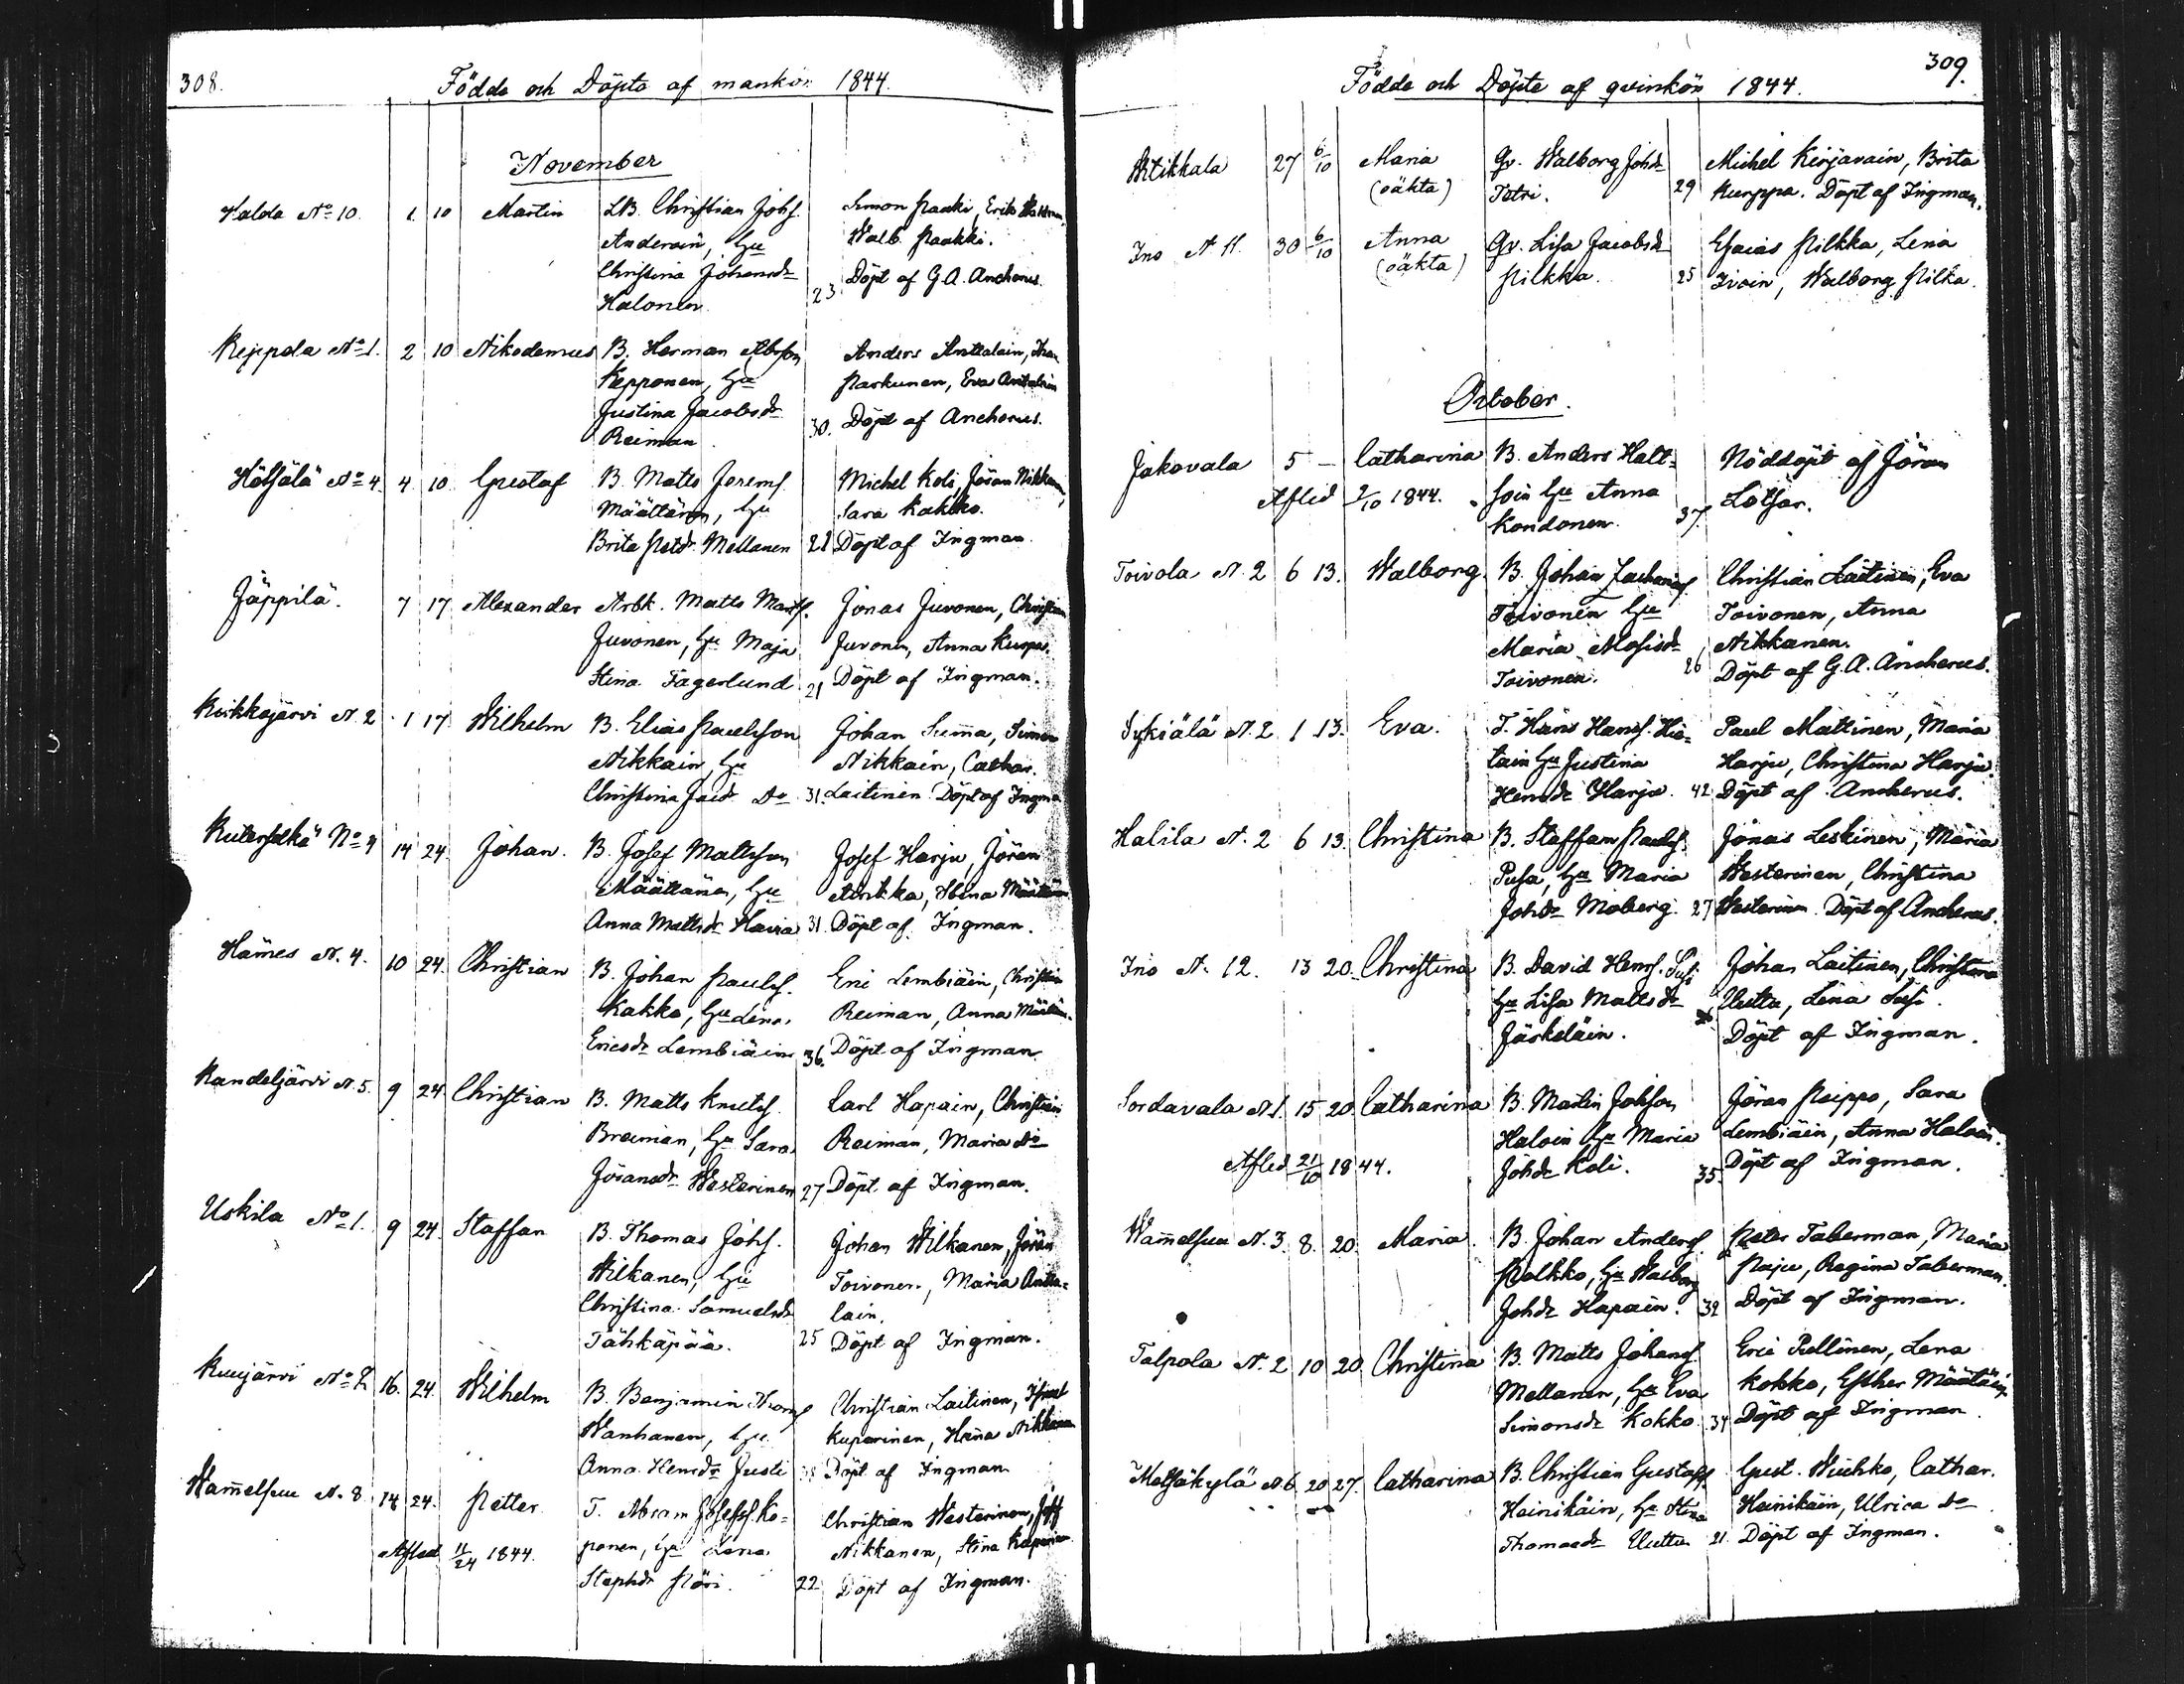 308.
Födde och Döpte af mankön 1844.
November
Halda No 10. 1 10 Martin LB. Christian Johs. Simon Paaki, Erik
Anderoin, Hu Walb. Paakki.
Christina Johansdr 23 Döpt af G.A. Ancherus.
Halonen
Keppola No 1. 2 10 Nikodemus B. Herman Abrson Anders Anttalain,
Kepponen, Hu Paskunen, Eva Antalain
Justina Jacobsdr 30. Döpt af Ancherus.
Reiman
Hötsölä No 4. 4 10 Gustaf B. Matts Jerems. Michel Koli, Jöran Nikkan,
Määttänen, Hu Sara Kakko.
Brita Petdr Mellanen 21 Döpt af Ingman.
Jäppilä. 7 17 Alexander Arbk. Matts Marts. Jonas Juvonen, Christian
Juvonen, Hu Maja Juvonen, Anna Kurpa.
Stina Fagerlund 21 Döpt af Ingman.
Kuikkajärvi N. 2 1 17 Wilhelm B. Elias Paulsson Johan Summa, Simon
Nikkain, Hu Nikkain, Cathar.
Christina Jacdr Do 31. Laitinen Döpt af Ingma
No 4 14 24. Johan. B. Josef Mattsson Josef Harju, Jöran
Määttänen, Hu Stina Määttän
Anna Mattsdr Havia 31. Döpt af Ingman.
Hames N. 4. 10 24. Christian B. Johan Paulss. Eric Lembiäin, Christin
Kakko, Hu Lena Reiman, Anna Määttän.
Ericsdr Lembiäin 36. Döpt af Ingman
Kandeljärvi N. 5. 9 24 Christian B. Matts Knuts. Carl Hapain, Christian
Breiman, Hu Sara Reiman, Maria Do
Jöransdr Westerinen 27 Döpt af Ingman.
Uskila No 1. 9 24. Staffan B. Thomas Johs. Johan Wilkanen, Jöran
Wilkanen, Hu Toivonen, Maria Antta-
Christina Samuelsdr lain.
Tähkäpää. 25 Döpt af Ingman.
Kuujärvi No 2 16. 24. Wilhelm B. Benjamin Christian Laitinen,
Wanhanen, Hu Kuparinen, Hanna Nikkanen
Anna Henrdr Justi Döpt af Ingman
Wammelsuu N. 8 14 24. Petter T. Abram Josefss. Ko- Christian Westerinen,
Afled 11/24 1844. ponen, Hu Lena Nikkanen, Stina
Stephdr Pöri. 22 Döpt af Ingman.
309.
Födde och Döpte af qvinkön 1844.
Atikkala 27 6/10 Maria Qv. Walborg Johdr Michel Kirjavain, Brita
(oäkta) Tetri. 29 Kurppa. Döpt af Ingman.
Ino N 11. 30 6/10 Anna Qv. Lisa Jacobsdr Esaias Pilkka, Lena
(oäkta) Pilkka. 25 Ivoin, Walborg Pilka.
October.
Jakovala 5 — Catharina B. Anders Halt- Nöddöpt af Jöran
Afled 9/10 1844. soin Hu Anna Lötsar.
Kondonen. 37.
Toivola N. 2 6 13. Walborg. B. Johan Zachariss Christian Laitinen, Eva
Toivonen Hu Toivonen, Anna
Maria Mosisdr Nikkanen.
Toivonen. 26 Döpt af G.A. Ancherus.
Sykiälä N. 2 1 13. Eva. T. Hans Hanss. Hie- Paul Mattinen, Maria
tain Hu Justina Harju, Christina Harju.
Henrdr Harju. 42 Döpt af Ancherus.
Halila N. 2 6 13. Christina B. Staffan Paulss. Jonas Leskinen, Maria
Pusa, Hu Maria Westerinen, Christina
Johdr Moberg. 27 Westerinen. Döpt af Ancherus.
Ino N. 12. 13 20. Christina B. David Henrs. Susi Johan Laitinen, Christina
Hu Lisa Mattsdr Uutta, Lena Susi.
Jäskeläin. Döpt af Ingman.
Sordavala N 1. 15 20. Catharina B. Martin Johsson Jöran Peippo, Sara
Haloin Hu Maria Lembiäin, Anna Haloin.
Afled 21/10 1844. Johdr Koli. 35 Döpt af Ingman.
Wammelsuu N. 3. 8. 20. Maria. B. Johan Anderss. Peter Taberman, Maria
Polkko, Hu Walborg Paju, Regina Taberman.
Johdr Hapain. 32 Döpt af Ingman.
Talpola N. 2 10 20. Christina B. Matts Johanss. Eric Pullinen, Lena
Mellanen, Hu Eva Kokko, Esther Määtäin
Simonsdr Kokko. 34 Döpt af Ingman.
Metsäkylä N 6 20 27. Catharina B. Christian Gustafs. Gust. Wiuhko, Cathar.
Heinikäin, Hu Stina Heinikäin, Ulrica Do
Thomasdr Uuttu 21. Döpt af Ingman.